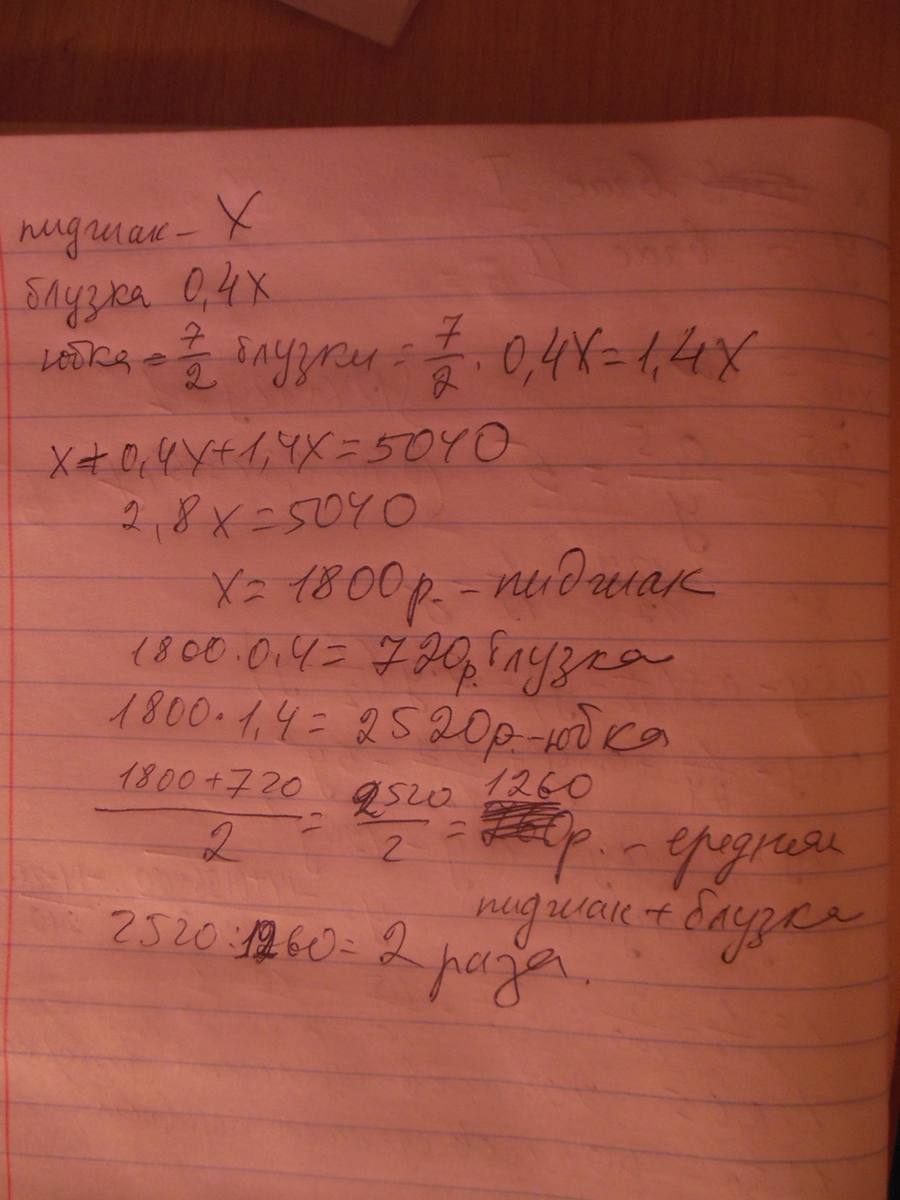 пиджак - X
блузка 0,4X
юбка = 7/2 блузки = 7/2 · 0,4X = 1,4X
X + 0,4X + 1,4X = 5040
2,8X = 5040
X = 1800р. - пиджак
1800 · 0,4 = 720р. блузка
1800 · 1,4 = 2520р. - юбка
(1800 + 720)/2 = 2520/2 = 1260р. - средняя
пиджак + блузка
2520 : 1260 = 2 раза.